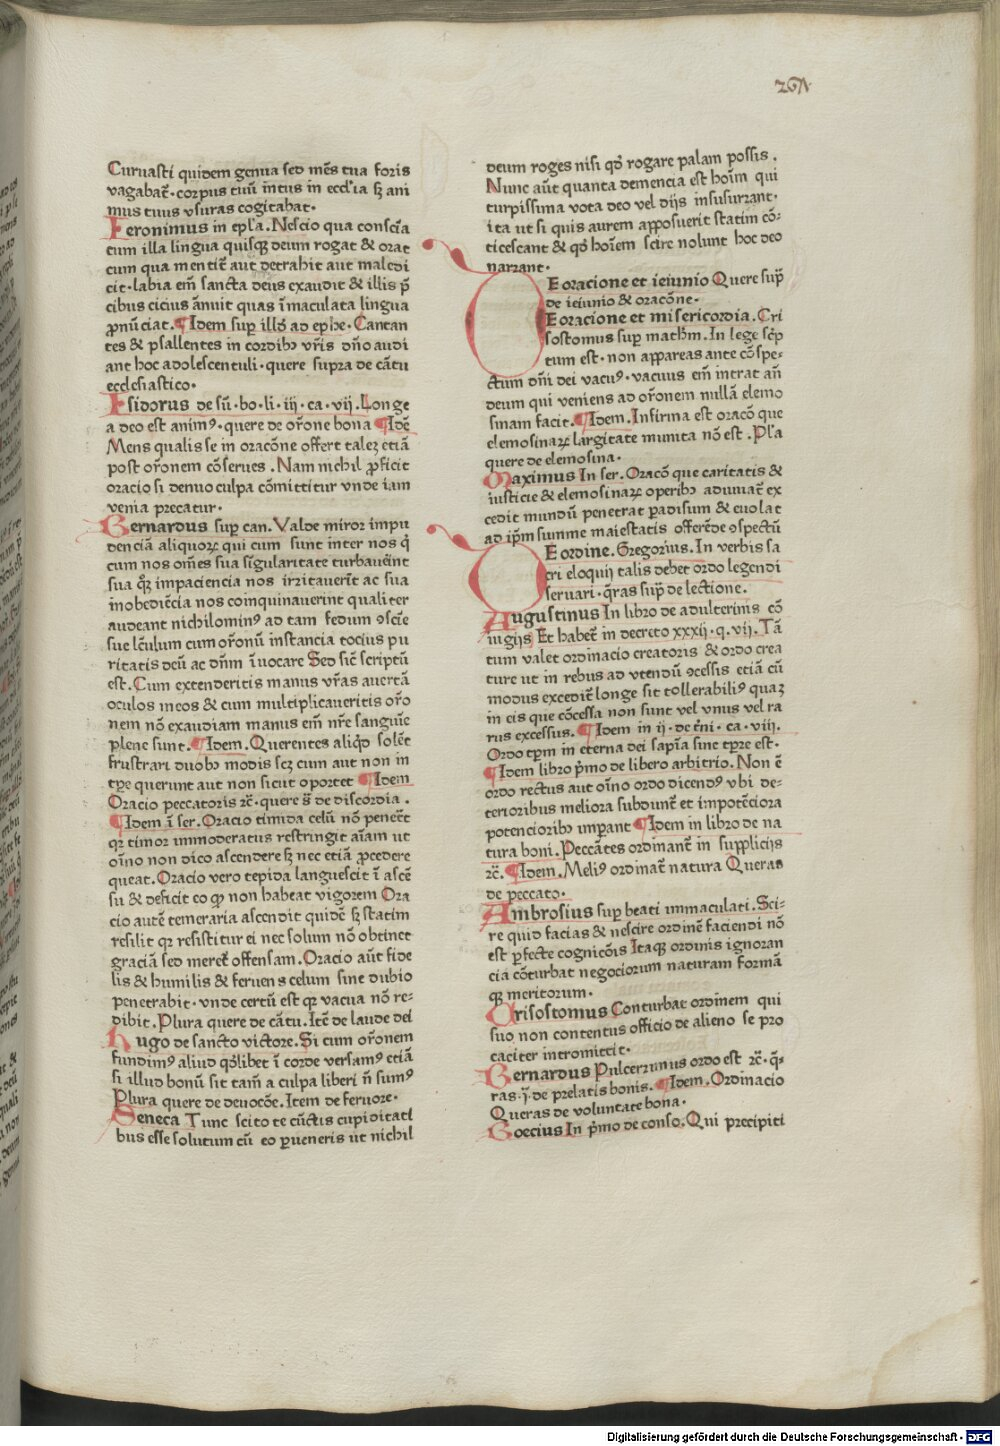 261
Curuasti quidem genua sed mēs tua foris
vagabat̄·corpus tuū intus in eccl'ia sꝫ ani
mus tuus vsuras cogitabat·
Ieronimus in epl'a. Nescio qua consciā
tum illa lingua quisqꝫ deum rogat & orat
cum qua mentit̄ aut detrahit aut maledi
cit·labia em̄ sancta deus exaudit & illis p̄
cibus cicius ānuit quas īmaculata lingua
ꝓnūciat. ¶Idem suꝑ illꝰ ad ephe· Cantan
tes & psallentes in cordibꝫ vr̄is dn̄o audi
ant hoc adolescentuli·quere supra de cātu
ecclesiastico·
Isidorus de sū·bo·li·iij·ca·vij. Longe
a deo est animꝰ·quere de or̄one bona ¶Idē
Mens qualis se in oracōne offert talez etiā
post or̄onem cōserues. Nam nichil ꝓficit
oracio si denuo culpa cōmittitur vnde iam
venia precatur·
Bernardus suꝑ can. Valde miror impu
denciā aliquoꝝ qui cum sunt inter nos q̇
cum nos om̄es sua sīgularitate turbauerīt
sua qꝫ impaciencia nos irritauerīt ac sua
inobediēcia nos coinquinauerint qualiter
audeant nichilominꝰ ad tam fedum ꝯsciē
sue lc̄ulum cum or̄onū instancia tocius pu
ritatis deū ac dn̄m īuocare Sed sic̄ scriptū
est. Cum extenderitis manus vr̄as auertā
oculos meos & cum multiplicaueritis or̄o
nem nō exaudiam manus em̄ nr̄e sanguīe
plene sunt. ¶Idem. Querentes aliqd̄ solēt
frustrari duobꝫ modis scꝫ cum aut non in
tꝑe querunt aut non sicut oportet ¶Idem
Oracio peccatoris ⁊c̄·quere s̄ de discordia.
¶Idem ī ser. Oracio timida celū nō peneēt
qꝛ timor immoderatus restringit aīam ut
oīno non dico ascendere sꝫ nec etiā ꝓcedere
queat. Oracio vero tepida languescit ī ascē
su & deficit eo ꝙ non habeat vigorem Ora
cio autē temeraria ascendit quidē sꝫ statim
resilit qꝛ resistitur ei nec solum nō obtinet
graciā sed meret̄ offensam. Oracio aūt fide
lis & humilis & feruens celum sine dubio
penetrabit·vnde certū est qꝛ vacua nō re-
dibit. Plura quere de cātu. Itē de laude dei
Hugo de sancto victore. Si cum or̄onem
fundimꝰ aliud qd̄libet ī corde versamꝰ etiā
si illud bonū sit tam̄ a culpa liberi n̄ sumꝰ
Plura quere de deuocōe. Item de feruore·
Seneca Tunc scito te cūctis cupiditati
bus esse solutum cū eo ꝑueneris ut nichil
deum roges nisi qd̄ rogare palam possis.
Nunc aūt quanta demencia est hoīm qui
turpissima vota deo vel dijs insusurrant·
ita ut si quis aurem apposuerit statim cō-
ticescant & qd̄ hoīem scire nolunt hoc deo
narrant·
DE oracione et ieiunio Quere sup̄
de ieiunio & oracōne·
DE oracione et misericordia. Cri
sostomus suꝑ mathm̄. In lege sc̄p
tum est·non appareas ante cōspe-
ctum dn̄i dei vacuꝰ·vacuus em̄ intrat an̄
deum qui veniens ad or̄onem nullā elemo
sinam facit. ¶Idem. Infirma est oracō que
elemosinaꝝ largitate munita nō est. Pl'a
quere de elemosina·
Maximus In ser. Oracō que caritatis &
iusticie & elemosinaꝝ operibꝫ adiuuat̄ ex
cedit mundū penetrat ꝑadisum & euolat
ad ip̄m summe maiestatis offerēde ꝯspectū
DE ordine. Gregorius. In verbis sa
cri eloquij talis debet ordo legendi
seruari·q̄ras sup̄ de lectione.
Augustinus In libro de adulterinis cō
iugijs Et habet̄ in decreto xxxij·q·vij. Tā
tum valet ordinacio creatoris & ordo crea
ture ut in rebus ad vtendū ꝯcessis etiā cū
modus excedit̄ longe sit tollerabiliꝰ quaꝫ
in eis que cōcessa non sunt vel vnus vel ra
rus excessus. ¶Idem in ij·de t̄ni·ca·viij.
Ordo tꝑm in eterna dei sapīa sine tꝑre est·
¶Idem libro p̄mo de libero arbitrio. Non ē
ordo rectus aut oīno ordo dicendꝰ vbi de-
terioribus meliora subdunt̄ et impotēciora
potencioribꝫ imꝑant ¶Idem in libro de na
tura boni. Peccātes ordinant̄ in supplicijs
⁊c̄. ¶Idem. Meliꝰ ordinat̄ natura Queras
de peccato·
Ambrosius suꝑ beati immaculati. Sci-
re quid facias & nescire ordinē faciendi nō
est ꝑfecte cognicōis Itaqꝫ ordinis ignoran
cia cōturbat negociorum naturam formā
qꝫ meritorum.
Crisostomus Conturbat ordinem qui
suo non contentus officio de alieno se pro
caciter intromittit·
Bernardus Pulcerrimus ordo est ⁊c̄·q̄-
ras·ī·de prelatis bonis. ¶Idem. Ordinacio
Queras de voluntate bona·
Boecius In p̄mo de conso. Qui precipiti
Digitalisierung gefördert durch die Deutsche Forschungsgemeinschaft - DFG